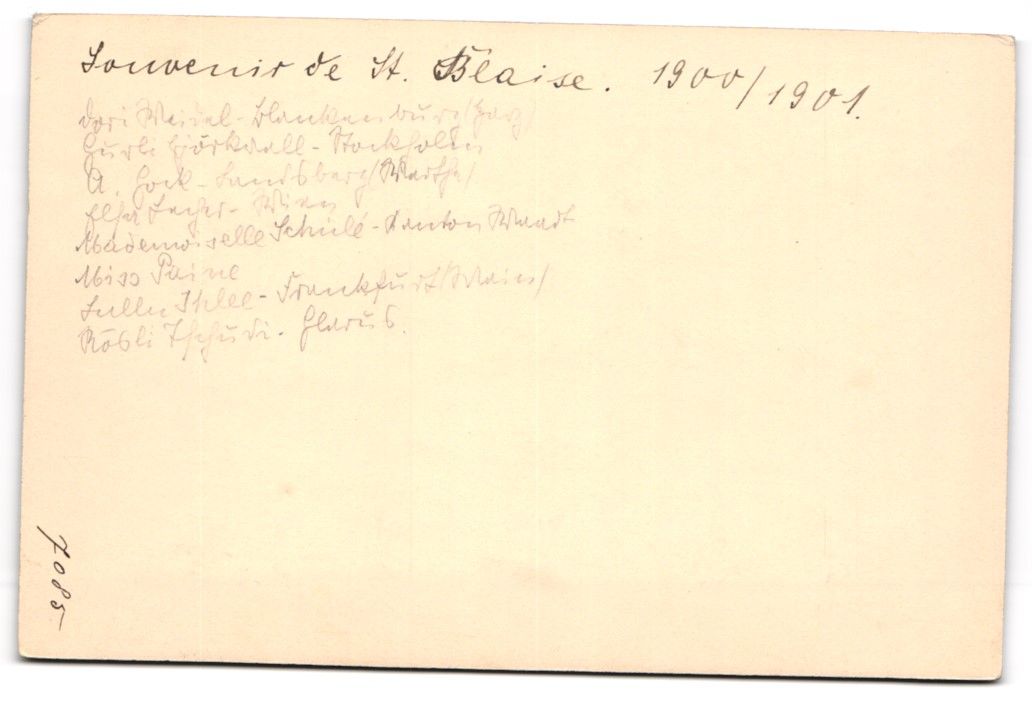 Souvenir de St. Blaise. 1900/1901.
Dori Weidel - Blankenburg (Harz)
Gurli Björkdall - Stockholm
A. Hock - Landsberg (Warthe)
Elsa - Wien
Mademoiselle Schulé - Kanton Waadt
Miss Paine
Ihlee - Frankfurt (Main)
Rösli Tschudi - Glarus.
7085